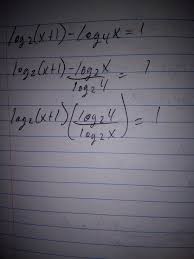 log₂(x+1) - log₄x = 1
log₂(x+1) - log₂x / log₂4 = 1
log₂(x+1) (log₂4 / log₂x) = 1